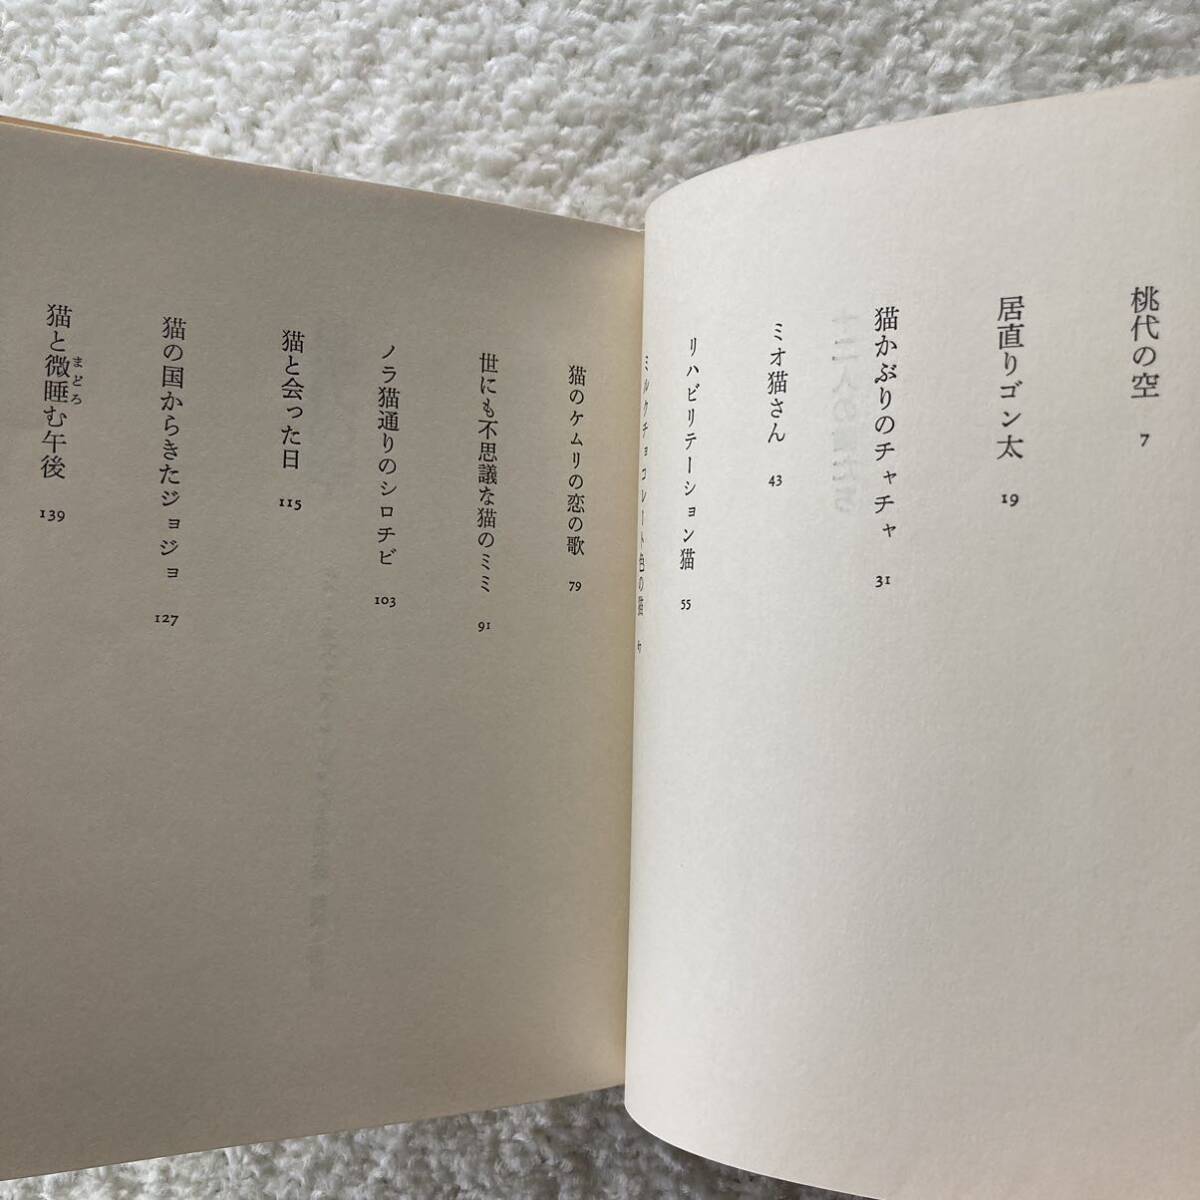 桃代の空 7
居直りゴン太 19
猫かぶりのチャチャ 31
ミオ猫さん 43
リハビリテーション猫 55
ミルクチョコレート色の猫
猫のケムリの恋の歌 79
世にも不思議な猫のミミ 91
ノラ猫通りのシロチビ 103
猫と会った日 115
猫の国からきたジョジョ 127
猫と微睡む午後 139
まどろ